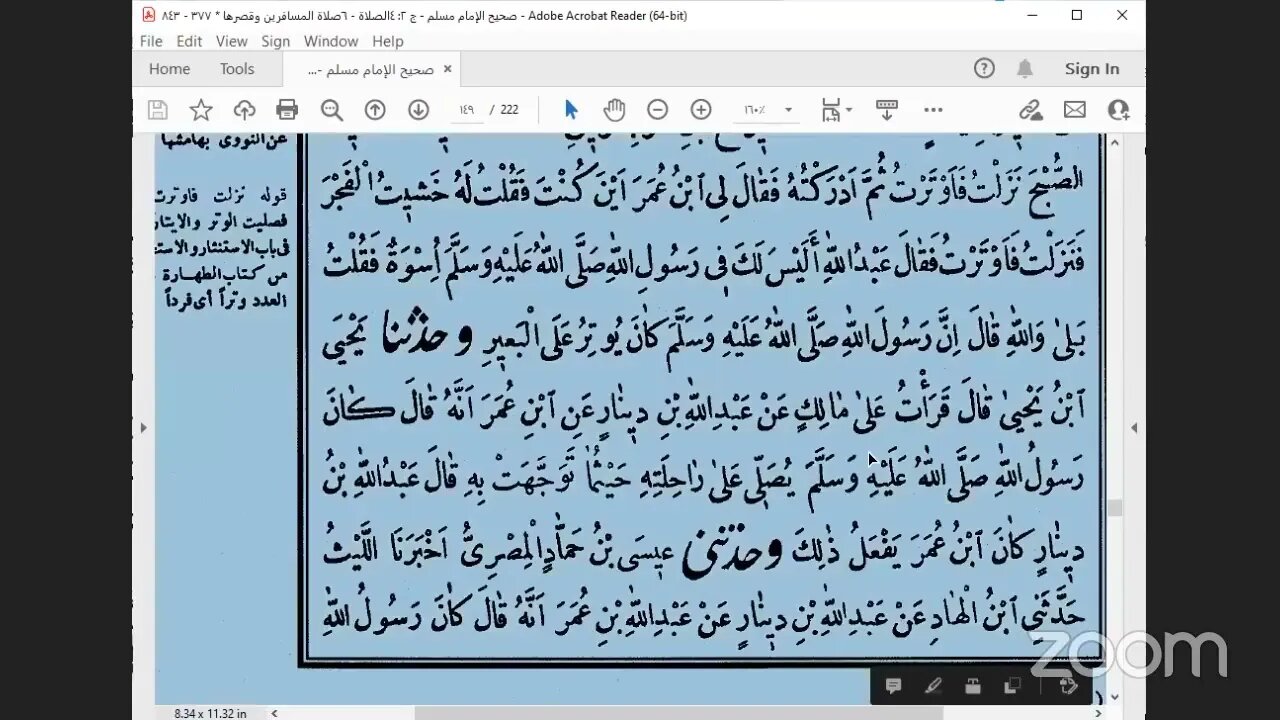 صحيح الإمام مسلم - ج ٢: ٤الصلاة - ٦صلاة المسافرين وقصرها * ٣٧٧ - ٨٤٣ - Adobe Acrobat Reader (64-bit)
File Edit View Sign Window Help
Home Tools صحيح الإمام مسلم -... × Sign In
١٤٩ / 222 ١٦٠٪
عن النووى بهامشها
قوله نزلت فاوترت
فصليت الوتر والايتار
فى باب الاستنثار والاست
من كتاب الطهارة
العدد وتراً أى فرداً
الصُّبْحَ نَزَلْتُ فَاَوْتَرْتُ ثُمَّ اَدْرَكْتُهُ فَقَالَ لِى ابْنُ عُمَرَ اَيْنَ كُنْتَ فَقُلْتُ لَهُ خَشِيتُ الْفَجْرَ
فَنَزَلْتُ فَاَوْتَرْتُ فَقَالَ عَبْدُاللهِ أَلَيْسَ لَكَ فِى رَسُولِ اللهِ صَلَّى اللهُ عَلَيْهِ وَسَلَّمَ اُسْوَةٌ فَقُلْتُ
بَلىٰ وَاللهِ قَالَ اِنَّ رَسُولَ اللهِ صَلَّى اللهُ عَلَيْهِ وَسَلَّمَ كَانَ يُوتِرُ عَلَى الْبَعِيرِ وحدثنا يَحْيَى
ابْنُ يَحْيىٰ قَالَ قَرَأْتُ عَلىٰ مَالِكٍ عَنْ عَبْدِاللهِ بْنِ دِينَارٍ عَنِ ابْنِ عُمَرَ اَنَّهُ قَالَ كَانَ
رَسُولُ اللهِ صَلَّى اللهُ عَلَيْهِ وَسَلَّمَ يُصَلِّى عَلىٰ رَاحِلَتِهِ حَيْثُمَا تَوَجَّهَتْ بِهِ قَالَ عَبْدُاللهِ بْنُ
دِينَارٍ كَانَ ابْنُ عُمَرَ يَفْعَلُ ذٰلِكَ وحدثنى عِيسَى بْنُ حَمَّادٍ الْمِصْرِىُّ اَخْبَرَنَا اللَّيْثُ
حَدَّثَنِى ابْنُ الْهَادِ عَنْ عَبْدِاللهِ بْنِ دِينَارٍ عَنْ عَبْدِاللهِ بْنِ عُمَرَ اَنَّهُ قَالَ كَانَ رَسُولُ اللهِ
zoom
8.34 x 11.32 in